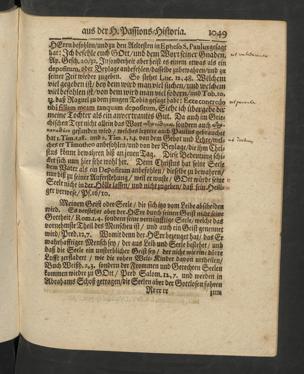 aus der H. Passions-Historia. 1049
HErrn befohlen/und zu den Aeltesten in Epheso S. Paulus gesagt
hat: Ich befehle euch GOtt/ und dem Wort seiner Gnaden,
Ap. Gesch. 20/32. Insonderheit aber heist es einem etwas als ein
depositum, oder Beylage anbefehlen/dasselbe zubewahren/und zu
seiner Zeit wieder zugeben. So stehet Luc. 12. 48. Welchem
viel gegeben ist/ bey dem wird man viel suchen/ und welchem
viel befohlen ist/von dem wird man viel fodern/und Tob. 10.
12. daß Raguel zu dem jungen Tobia gesagt habe: Ecce
tibi filiam meam tanquam depositum, Siehe ich übergebe dir
meine Tochter als ein anvertrautes Gut. Da auch im Grie-
chischen Text nicht allein das Wort sondern auch
gefunden wird / welches letztere auch Paulus gebrauchet
hat 1. Tim. 1.18. und 2. Tim. 2, 14. von dem Gebot und Lehre/welche
er Timotheo anbefohlen/ und von der Beylage/die ihm Chri-
stus könne bewahren biß an jenen Tag. Diese Bedeutung schi-
cket sich nun hier sehr wohl her. Denn Christus hat seine Seele
als ein Depositum anbefehlen / dieselbe zu bewahren/
nur biß zu seiner Auferstehung / weil er wuste / GOtt würde seine
Seele nicht in der Hölle lassen/ und nicht zugeben/ daß sein Heili-
ger verwese/ Ps. 16/10.
Meinen Geist oder Seele / die sich itzo vom Leibe abscheiden
wird. Es verstehet aber der HErr durch seinen Geist nicht seine
Gottheit/ Rom. 1.4. sondern seine vernünfftige Seele, welche das
vornehmste Theil des Menschen ist/ und auch ein Geist genennet
wird/ Pred. 12,7. Womit denn der HErr bezeuget hat/ das Er
wahrhafftiger Mensch sey / der aus Leib und Seele bestehet / und
daß die Seele ein unsterblicher Geist sey / der nicht wie eine dürre
Lufft zerflabert / wie die rohen Welt-Kinder davon urtheilen/
Buch Weish. 2,3. sondern der Frommen und Gerechten Seelen
kommen wieder zu GOtt / Pred Salom. 12,7. und werden in
Abrahams Schoß getragen/die Seelen aber der Gottlosen fahren
Rrr rr zum